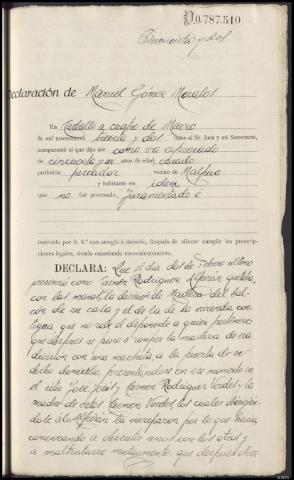 P.0.787.510
Cincuenta y dos
Declaración de Manuel Gómez Morales
En Carballo a cuatro de Marzo
de mil novecientos treinta y dos Ante el Sr. Juez y mi Secretario,
compareció el que dijo ser como va expresado
de cincuenta y años de edad, casado
profesión pescador vecino de Malpica
y habitante en idem
que no fué procesado, juramentado é
instruído por S. S.ª con arreglo a derecho, después de ofrecer cumplir las prescrip-
ciones legales, siendo examinado convenientemente.
DECLARA: Que el día dos de Febrero último
presenció como Carmen Rodriguez quitaba,
con las manos, la división de Madera del bal-
cón de su casa y el de la de la vivienda con-
tigua, que no sabe el deponente a quien pertenece
que despues se puso a romper la madera de esa
división con una machada, a la puerta de su
dicho domicilio, presentandose en ese momento en
el sitio José y Carmen Rodriguez Verdes y la
madre de estos Carmen Verdes, los cuales dirigién-
dose á la la increparon por lo que hacía,
comenzando a discutir unos con los otros y
a maltratarse mutuamente, que despues